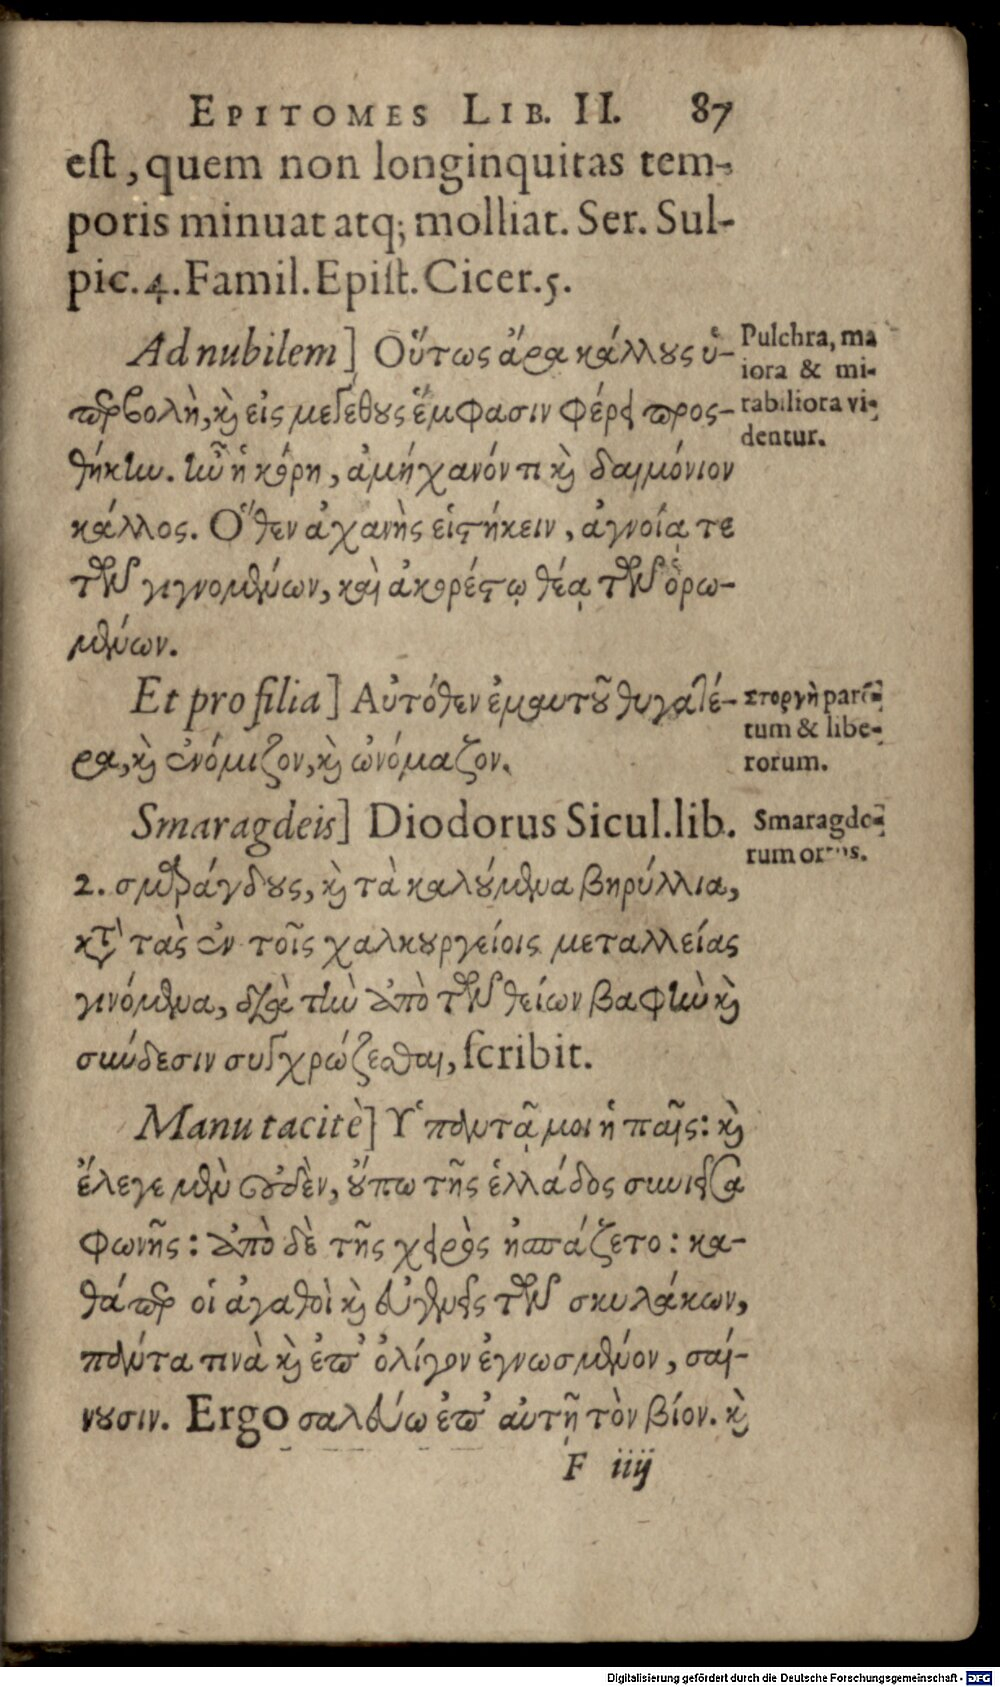 EPITOMES LIB. II. 87
est, quem non longinquitas tem-
poris minuat atq; molliat. Ser. Sul-
pic. 4. Famil. Epist. Cicer. 5.
Ad nubilem] Οὕτως ἄρα κάλλους ὑ-
περβολὴ, καὶ εἰς μεγέθους ἔμφασιν φέρει προς-
θήκην. ἦν ἡ κόρη, ἀμήχανόν τι καὶ δαιμόνιον
κάλλος. Ὅθεν ἀχανὴς εἱστήκειν, ἀγνοίᾳ τε
τῶν γιγνομένων, καὶ ἀκορέστῳ θέᾳ τῶν ὁρω-
μένων.
Pulchra, ma
iora & mi-
rabiliora vi-
dentur.
Et pro filia] Αὐτόθεν ἐμαυτοῦ θυγατέ-
ρα, καὶ ἐνόμιζον, καὶ ὠνόμαζον.
Στοργὴ paren-
tum & libe-
rorum.
Smaragdeis] Diodorus Sicul. lib.
2. σμαράγδους, καὶ τὰ καλούμενα βηρύλλια,
κατὰ τὰς ἐν τοῖς χαλκουργείοις μεταλλείας
γινόμενα, διὰ τὴν ἀπὸ τῶν θείων βαφὴν καὶ
σκύδεσιν συγχρώζεσθαι, scribit.
Smaragdo-
rum ortus.
Manu tacitè] Υἱπαντᾷ μοι ἡ παῖς: καὶ
ἔλεγε μὲν οὐδὲν, οὔπω τῆς ἑλλάδος συνιεῖσα
φωνῆς: ἀπὸ δὲ τῆς χειρὸς ἠσπάζετο: κα-
θάπερ οἱ ἀγαθοὶ καὶ εὐγενεῖς τῶν σκυλάκων,
πάντα τινὰ καὶ ἐπ' ὀλίγον ἐγνωσμένον, σαί-
νουσιν. Ergo σαλεύω ἐπ' αὐτῇ τὸν βίον. καὶ
F iiij
Digitalisierung gefördert durch die Deutsche Forschungsgemeinschaft - DFG